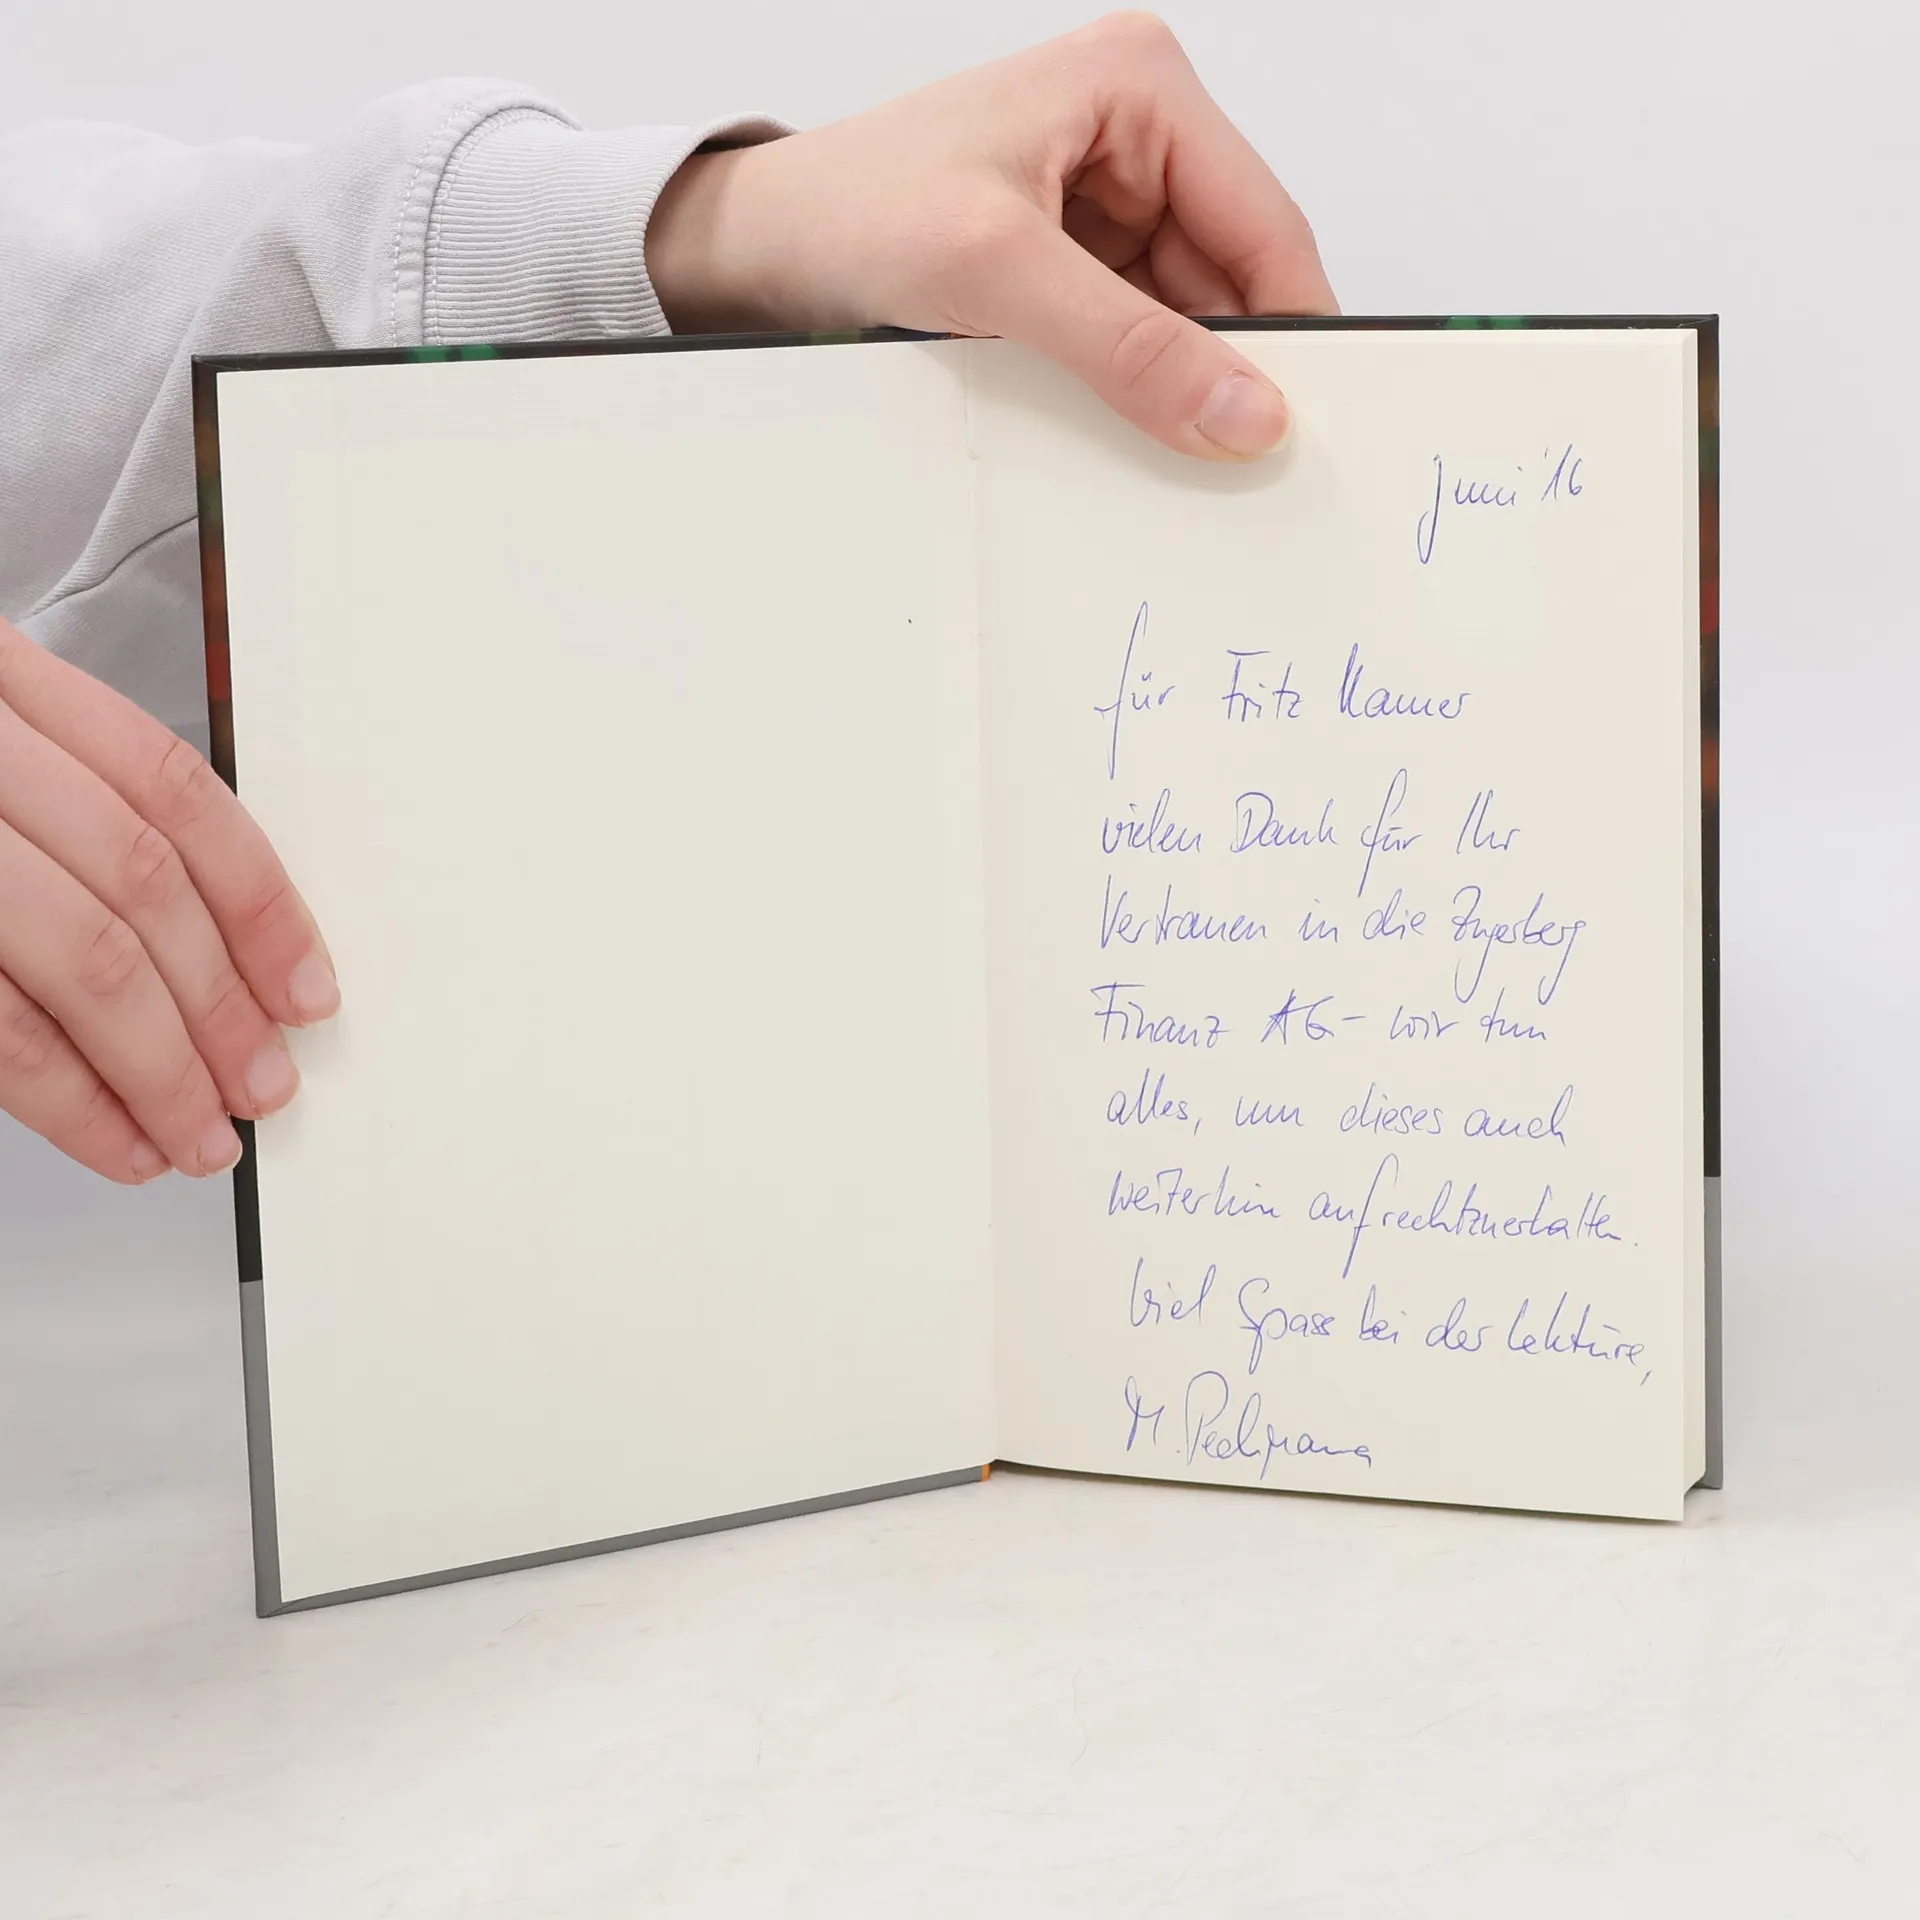 Juni '16
für Fritz Kamer
vielen Dank für Ihr
Vertrauen in die Zugerberg
Finanz AG – wir tun
alles, um dieses auch
weiterhin aufrechtzuerhalten.
Viel Spass bei der Lektüre,
M.